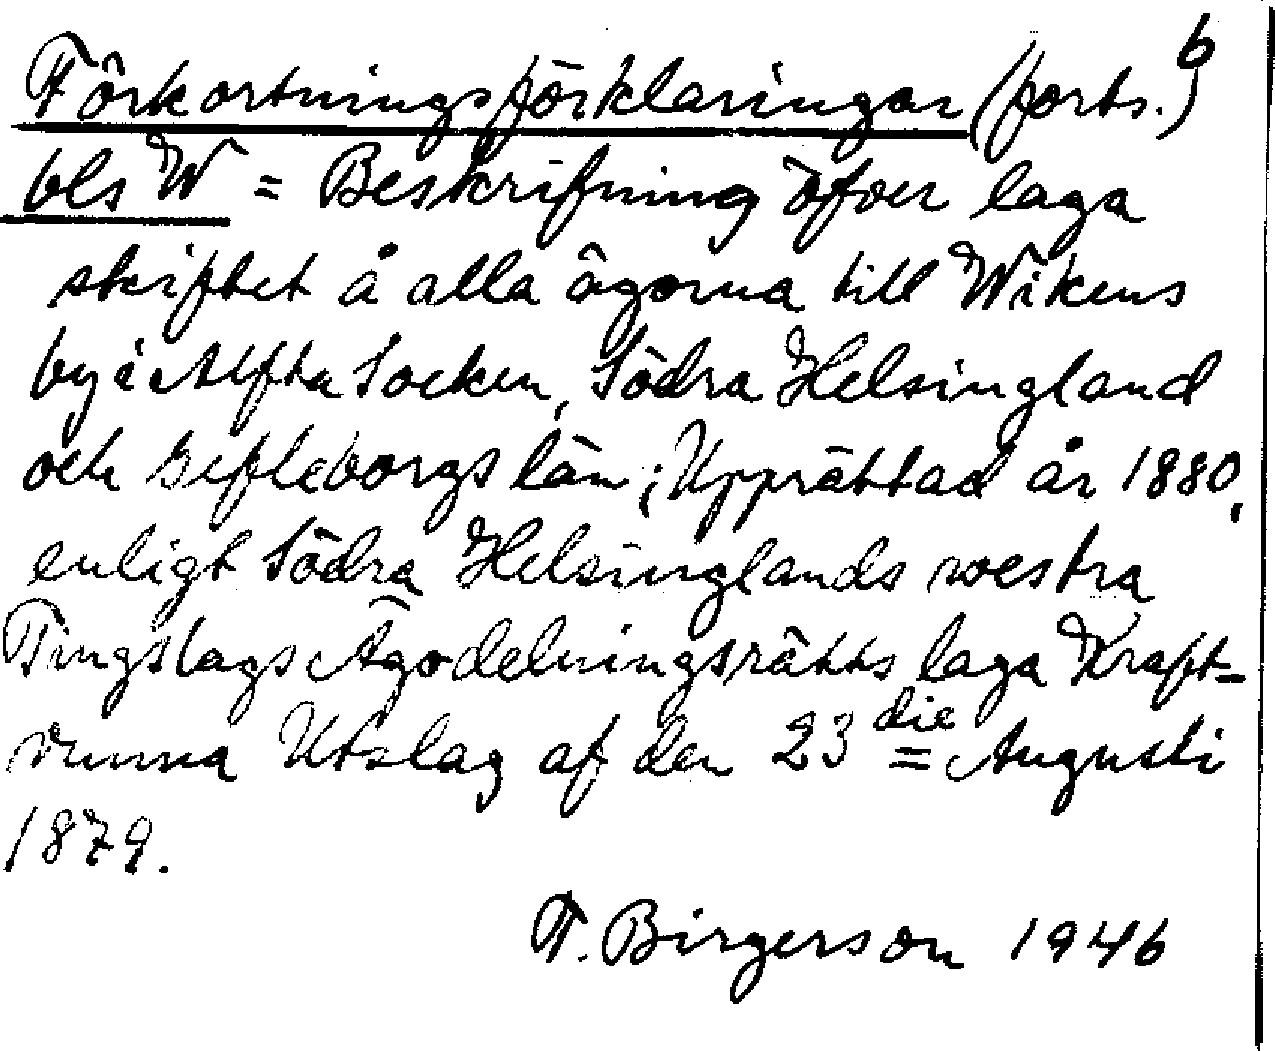 6
Förkortningsförklaringar (forts.)
bls W = Beskrifning öfver laga
skiftet å alla ägorna till Wikens
by i Alfta Socken, Södra Helsingland
och Gefleborgs län; Upprättad år 1880,
enligt Södra Helsinglands westra
Tingslags Ägodelningsrätts laga Kraft-
vunna Utslag af den 23 die Augusti
1879.
T. Birgerson 1946